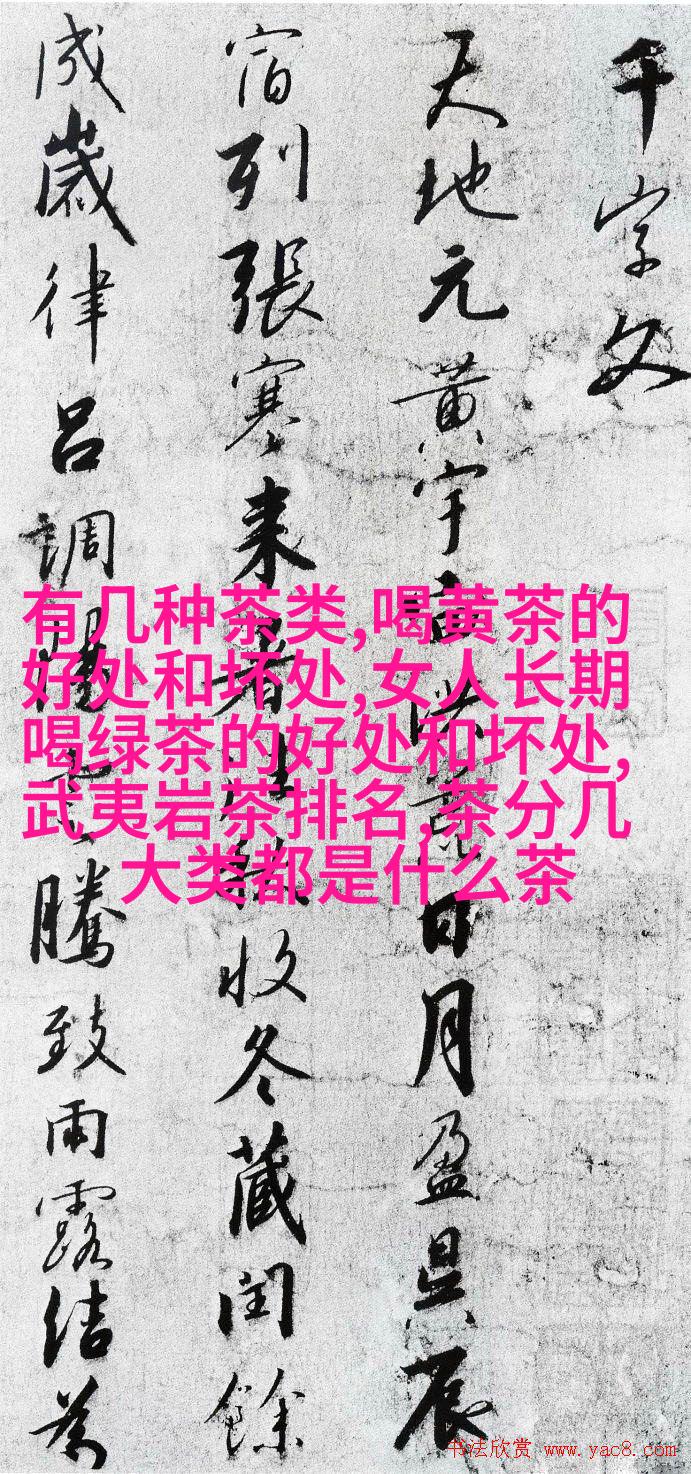 千字文
天地元黄宇宙洪荒日月盈昃辰
宿列張寒来暑往秋收冬藏閏餘
成歲律吕調陽雲騰致雨露結為
有几种茶类,喝黄茶的
好处和坏处,女人长期
喝绿茶的好处和坏处,
武夷岩茶排名,茶分几
大类都是什么茶
书法欣赏 www.yac8.com